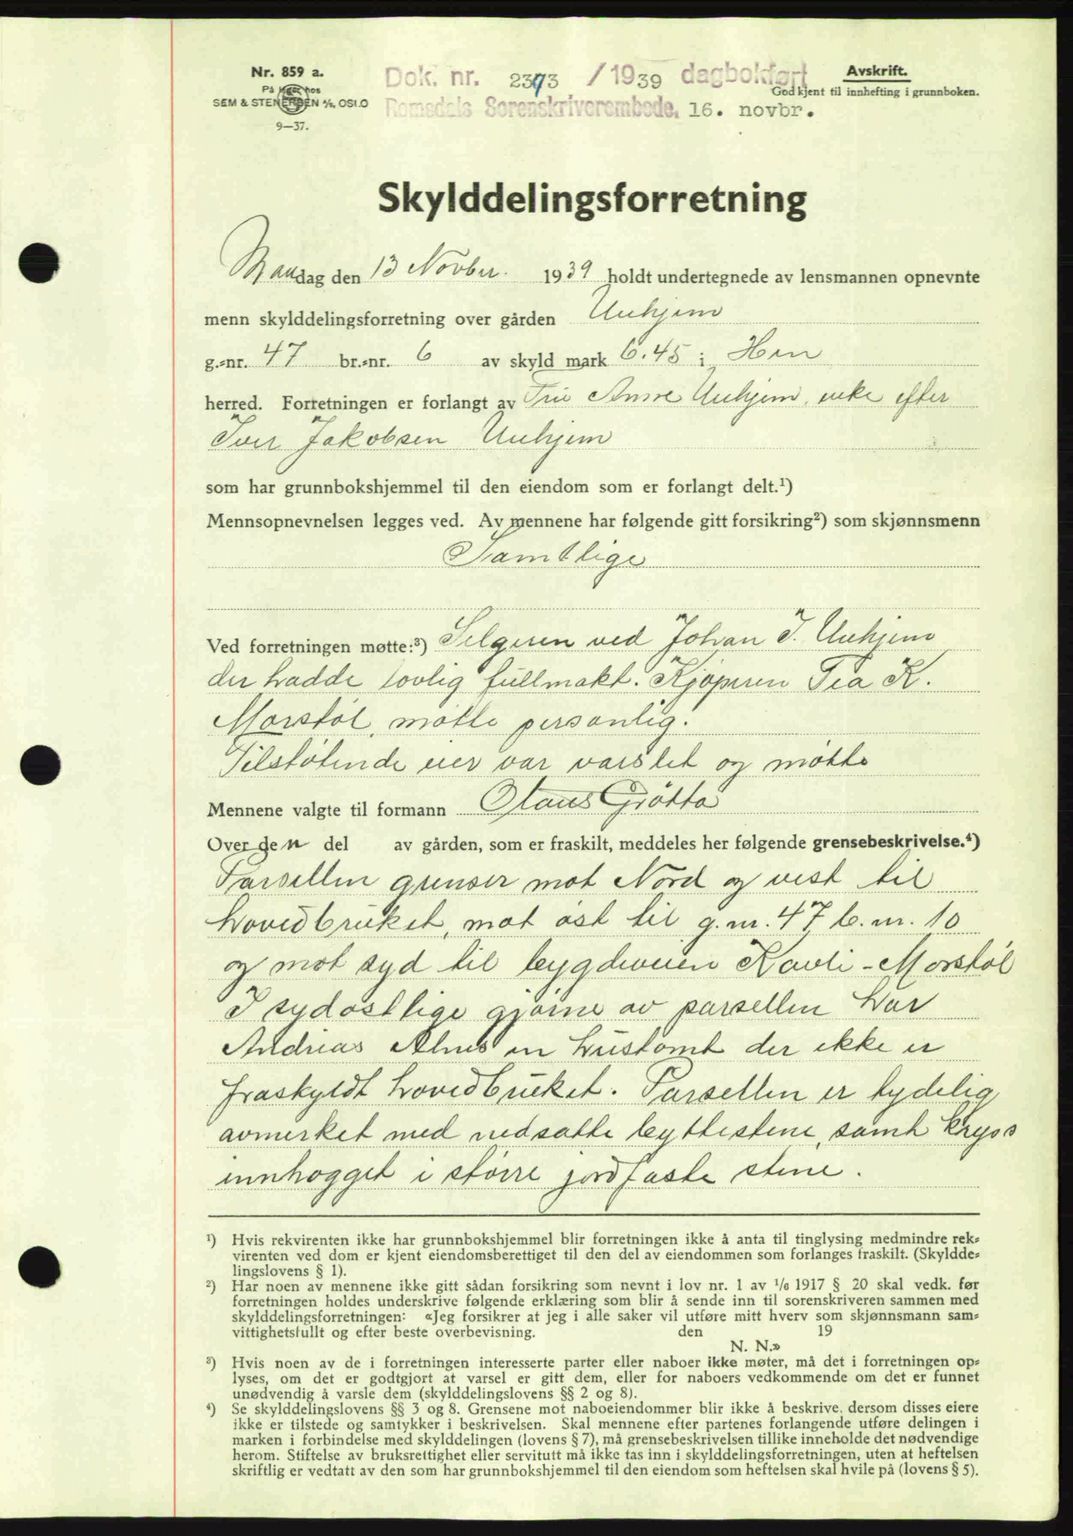 Nr. 859 a.
På lager hos
SEM & STENERSEN A/S, OSLO
9—37.
Dok. nr. 2373 /1939 dagbokført
Romsdals Sorenskriverembede. 16. novbr.
Avskrift.
Godkjent til innhefting i grunnboken.
Skylddelingsforretning
Mandag den 13 Novber. 1939 holdt undertegnede av lensmannen opnevnte
menn skylddelingsforretning over gården Unhjem
g.-nr. 47 br.-nr. 6 av skyld mark 6.45 i Hen
herred. Forretningen er forlangt av Fru Anne Unhjem, enke efter
Iver Jakobsen Unhjem
som har grunnbokshjemmel til den eiendom som er forlangt delt.¹)
Mennsopnevnelsen legges ved. Av mennene har følgende gitt forsikring²) som skjønnsmenn
Samtlige
Ved forretningen møtte:³) Selgeren ved Johan I. Unhjem
der hadde lovlig fullmakt. Kjøperen Tea K.
Morstøl, møtte personlig.
Tilstøtende eier var varslet og møtte
Mennene valgte til formann Olaus Grøtta
Over den del av gården, som er fraskilt, meddeles her følgende grensebeskrivelse.⁴)
Parsellen grenser mot Nord og vest til
hovedbruket, mot øst til g.nr. 47 b.nr. 10
og mot syd til bygdeveien Kavli - Morstøl
I sydøstlige gjørne av parsellen har
Andreas Alnes en hustomt der ikke er
fraskyldt hovedbruket. Parsellen er tydelig
avmerket med nedsatte byttestene, samt kryss
innhogget i større jordfaste stene.
¹) Hvis rekvirenten ikke har grunnbokshjemmel blir forretningen ikke å anta til tinglysing medmindre rek-
virenten ved dom er kjent eiendomsberettiget til den del av eiendommen som forlanges fraskilt. (Skyldde-
lingslovens § 1).
²) Har noen av mennene ikke gitt sådan forsikring som nevnt i lov nr. 1 av 1/6 1917 § 20 skal vedk. før
forretningen holdes underskrive følgende erklæring som blir å sende inn til sorenskriveren sammen med
skylddelingsforretningen: «Jeg forsikrer at jeg i alle saker vil utføre mitt hverv som skjønnsmann sam-
vittighetsfullt og efter beste overbevisning. den 19
N. N.»
³) Hvis noen av de i forretningen interesserte parter eller naboer ikke møter, må det i forretningen op-
lyses, om det er godtgjort at varsel er gitt dem, eller for naboers vedkommende om det er funnet
unødvendig å varsle dem (skylddelingslovens §§ 2 og 8).
⁴) Se skylddelingslovens §§ 3 og 8. Grensene mot naboeiendommer blir ikke å beskrive, dersom disses eiere
ikke er tilstede og samtykker i beskrivelsen. Skal mennene efter partenes forlangende utføre delingen i
marken i forbindelse med skylddelingen (lovens § 7), må grensebeskrivelsen tillike inneholde det nødvendige
herom. Stiftelse av bruksrettighet eller servitutt må ikke tas inn i skylddelingsforretningen, uten at heftelsen
skriftlig er vedtatt av den som har grunnbokshjemmel til den eiendom som heftelsen skal hvile på (lovens § 5).